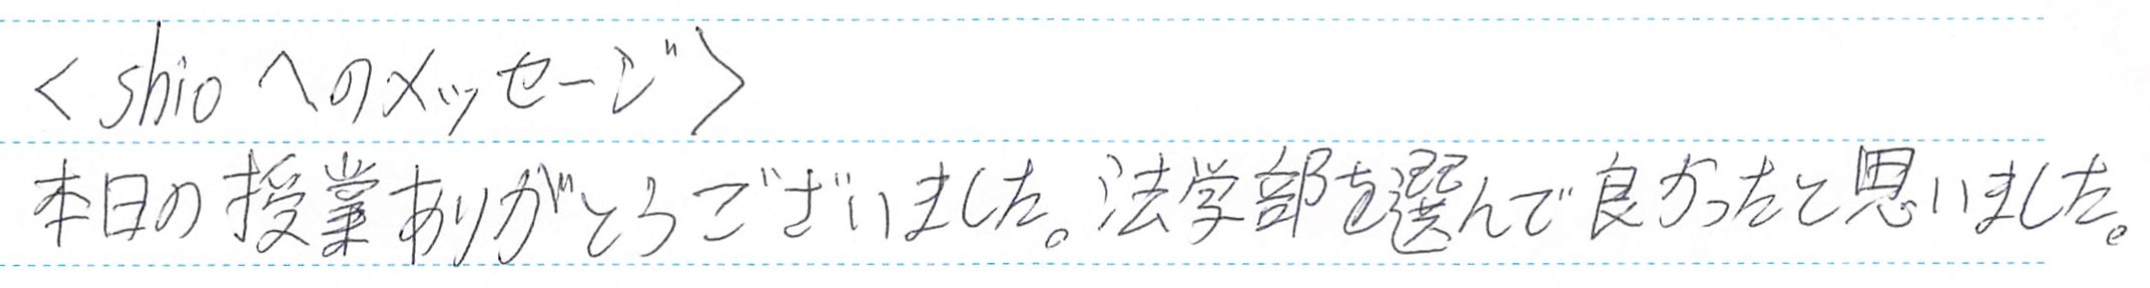 <shioへのメッセージ>
本日の授業ありがとうございました。法学部を選んで良かったと思いました。